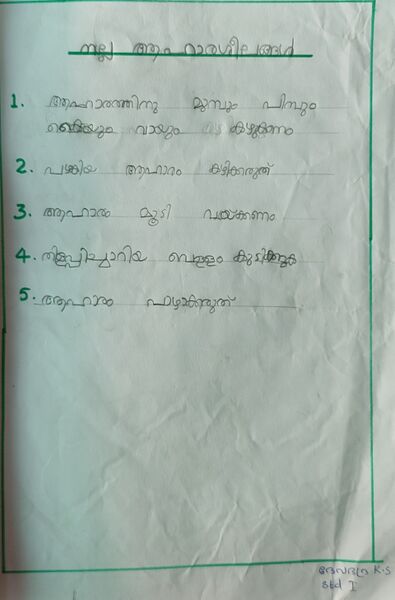 നല്ല ആഹാരശീലങ്ങൾ
1. ആഹാരത്തിനു മുമ്പും പിമ്പും
കൈയും വായും കഴുകണം
2. പഴകിയ ആഹാരം കഴിക്കരുത്
3. ആഹാരം മൂടി വയ്ക്കണം
4. തിളപ്പിച്ചാറിയ വെള്ളം കുടിക്കുക
5. ആഹാരം പാഴാക്കരുത്
K.S
Std I